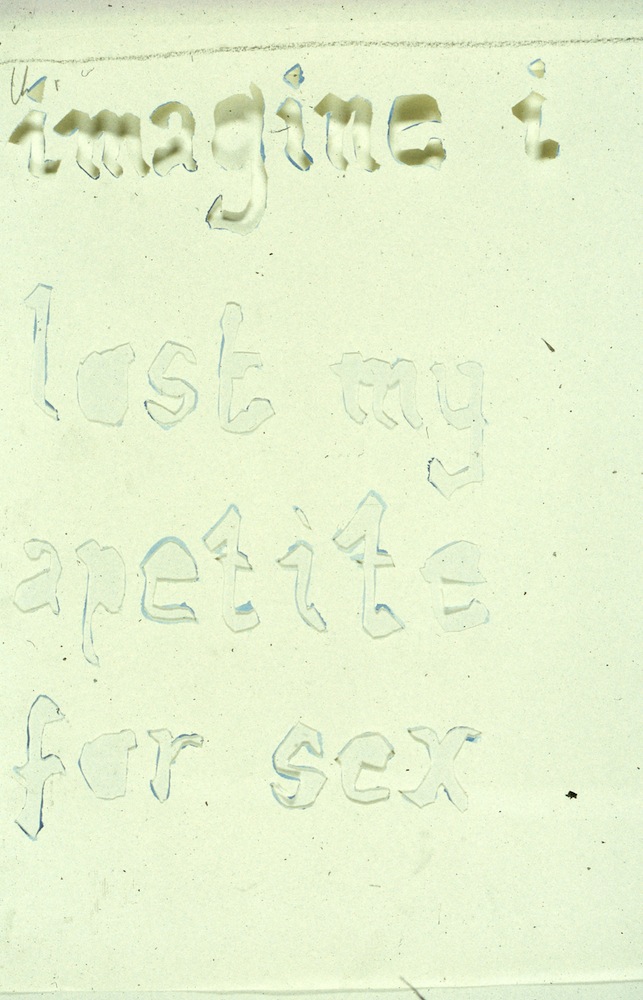 imagine i
lost my
apetite
for sex